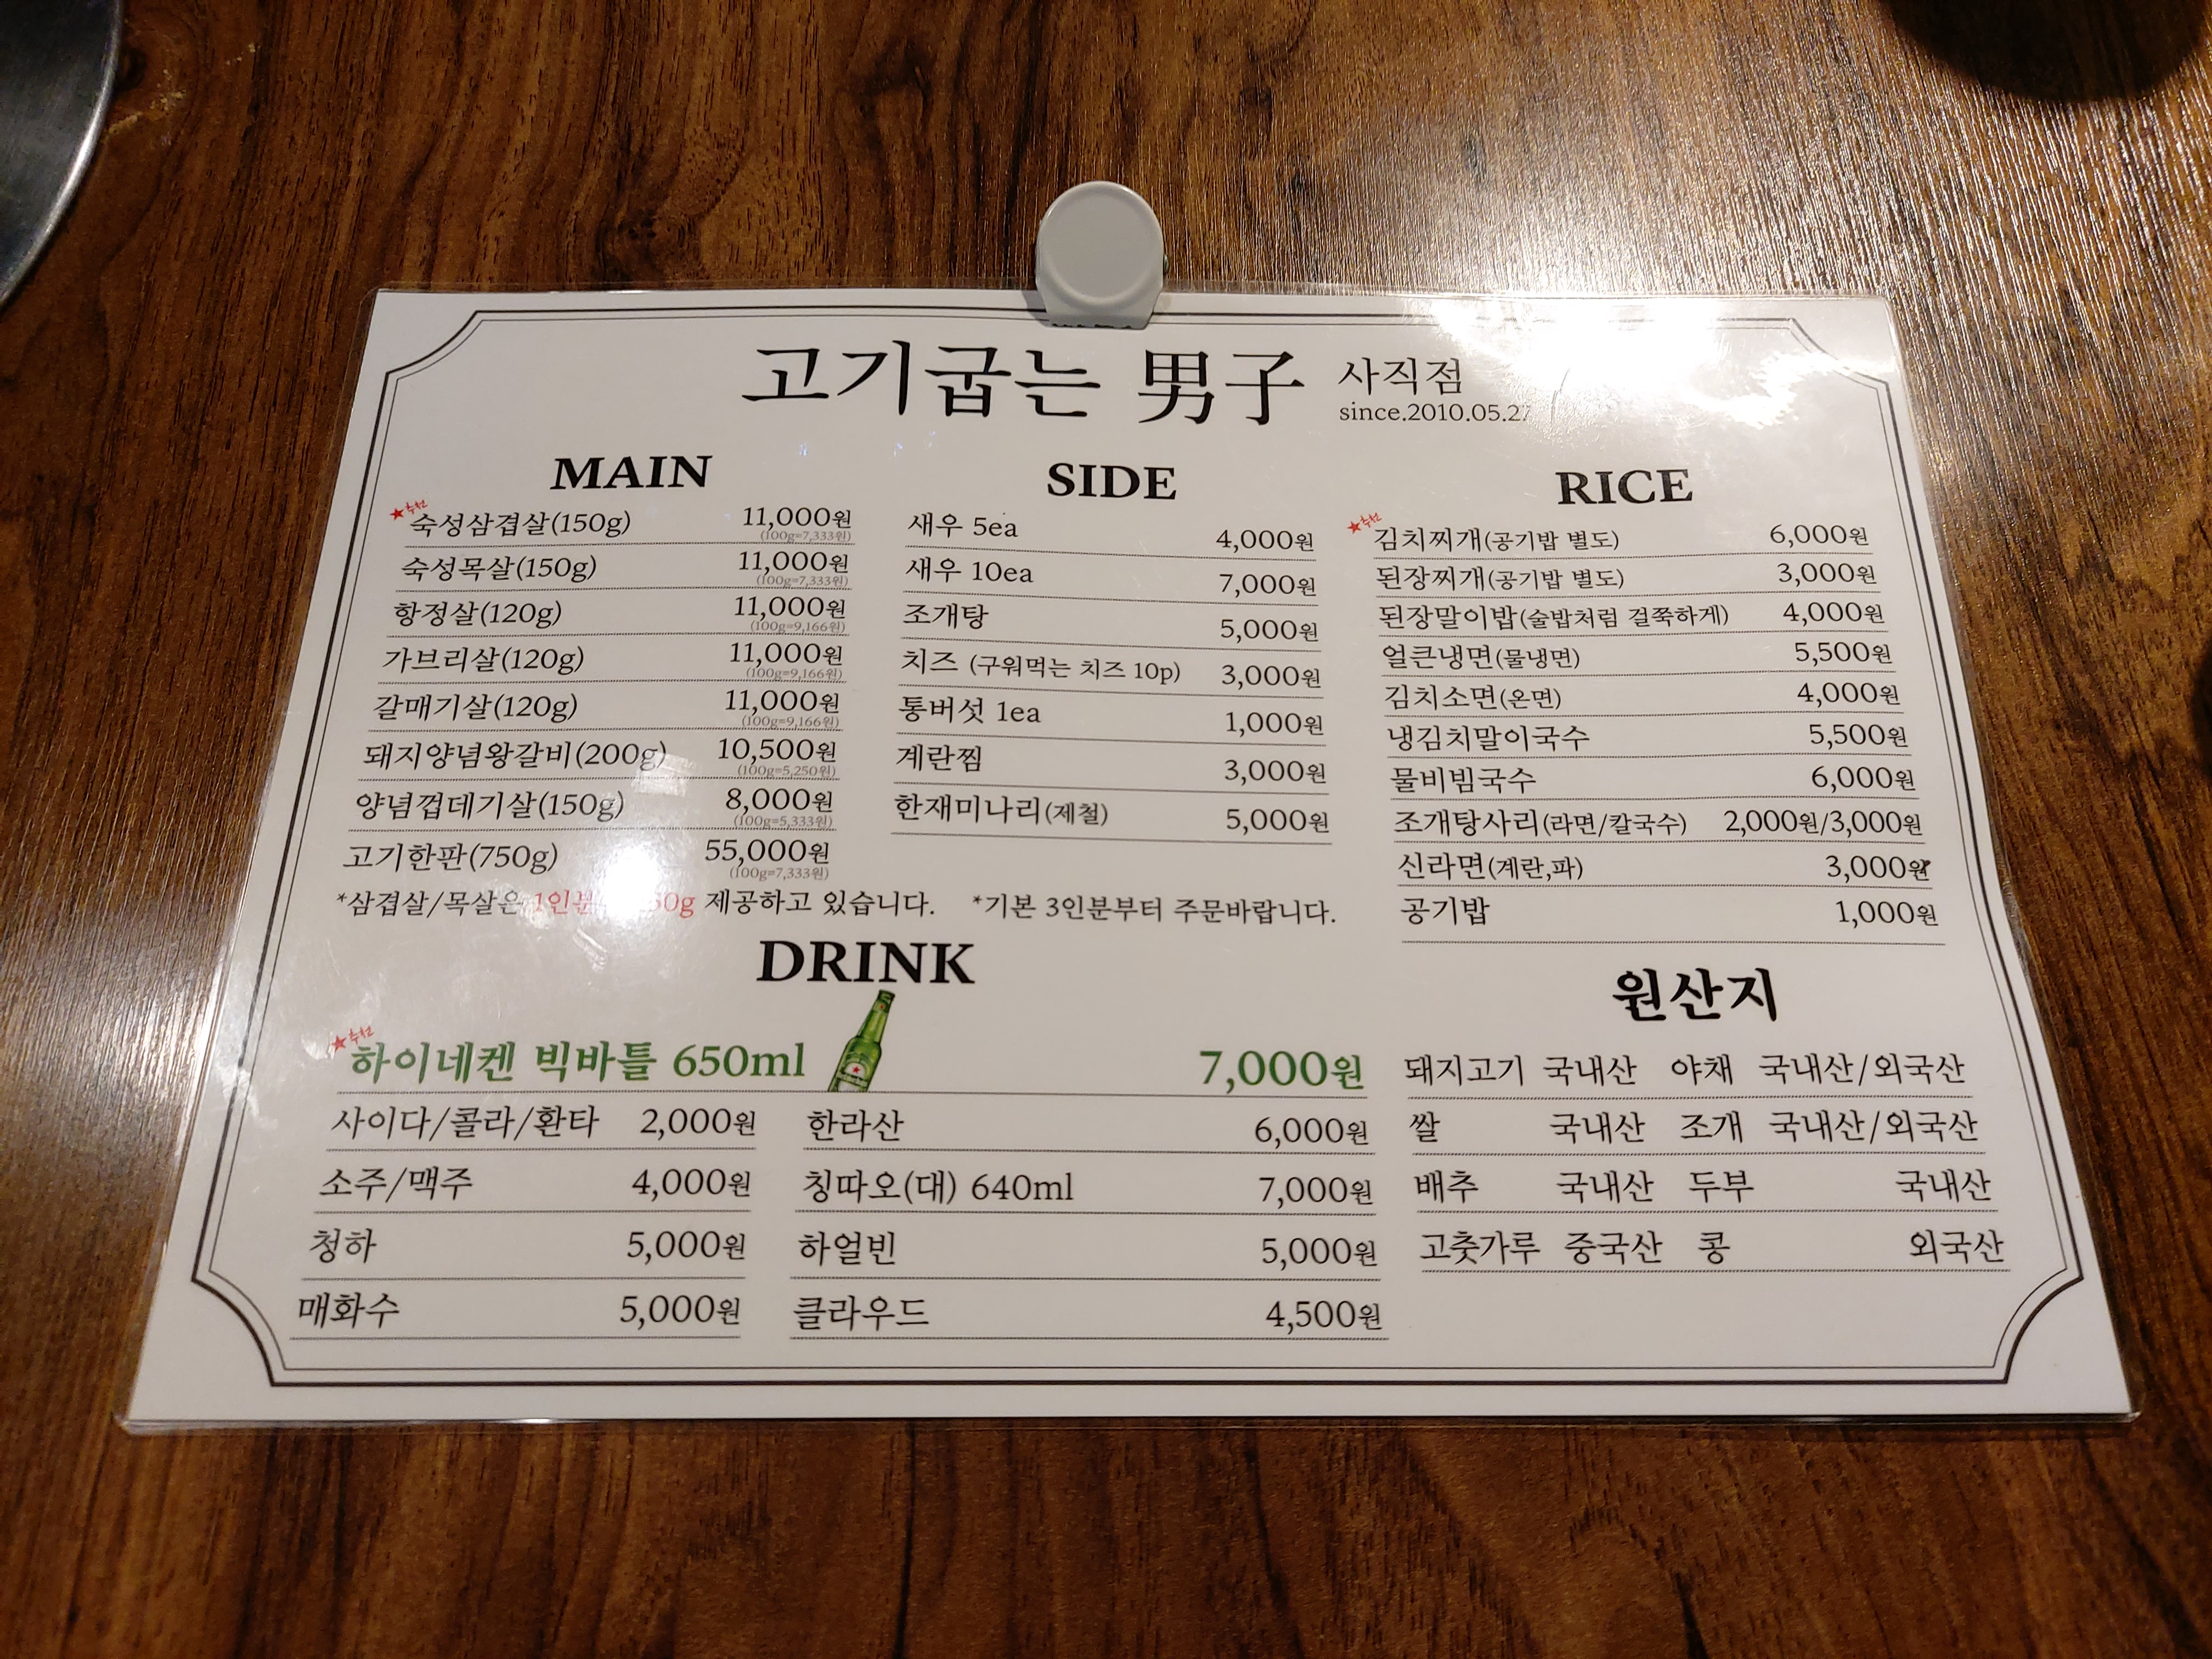 고기굽는 男子 사직점
since.2010.05.27
MAIN
★추천
숙성삼겹살(150g) 11,000원
(100g=7,333원)
숙성목살(150g) 11,000원
(100g=7,333원)
항정살(120g) 11,000원
(100g=9,166원)
가브리살(120g) 11,000원
(100g=9,166원)
갈매기살(120g) 11,000원
(100g=9,166원)
돼지양념왕갈비(200g) 10,500원
(100g=5,250원)
양념껍데기살(150g) 8,000원
(100g=5,333원)
고기한판(750g) 55,000원
(100g=7,333원)
*삼겹살/목살은 1인분 제공하고 있습니다. *기본 3인분부터 주문바랍니다.
SIDE
새우 5ea 4,000원
새우 10ea 7,000원
조개탕 5,000원
치즈 (구워먹는 치즈 10p) 3,000원
통버섯 1ea 1,000원
계란찜 3,000원
한재미나리(제철) 5,000원
RICE
★추천
김치찌개(공기밥 별도) 6,000원
된장찌개(공기밥 별도) 3,000원
된장말이밥(술밥처럼 걸쭉하게) 4,000원
얼큰냉면(물냉면) 5,500원
김치소면(온면) 4,000원
냉김치말이국수 5,500원
물비빔국수 6,000원
조개탕사리(라면/칼국수) 2,000원/3,000원
신라면(계란,파) 3,000원
공기밥 1,000원
DRINK
★추천
하이네켄 빅바틀 650ml 7,000원
사이다/콜라/환타 2,000원
소주/맥주 4,000원
청하 5,000원
매화수 5,000원
한라산 6,000원
칭따오(대) 640ml 7,000원
하얼빈 5,000원
클라우드 4,500원
원산지
돼지고기 국내산 야채 국내산/외국산
쌀 국내산 조개 국내산/외국산
배추 국내산 두부 국내산
고춧가루 중국산 콩 외국산